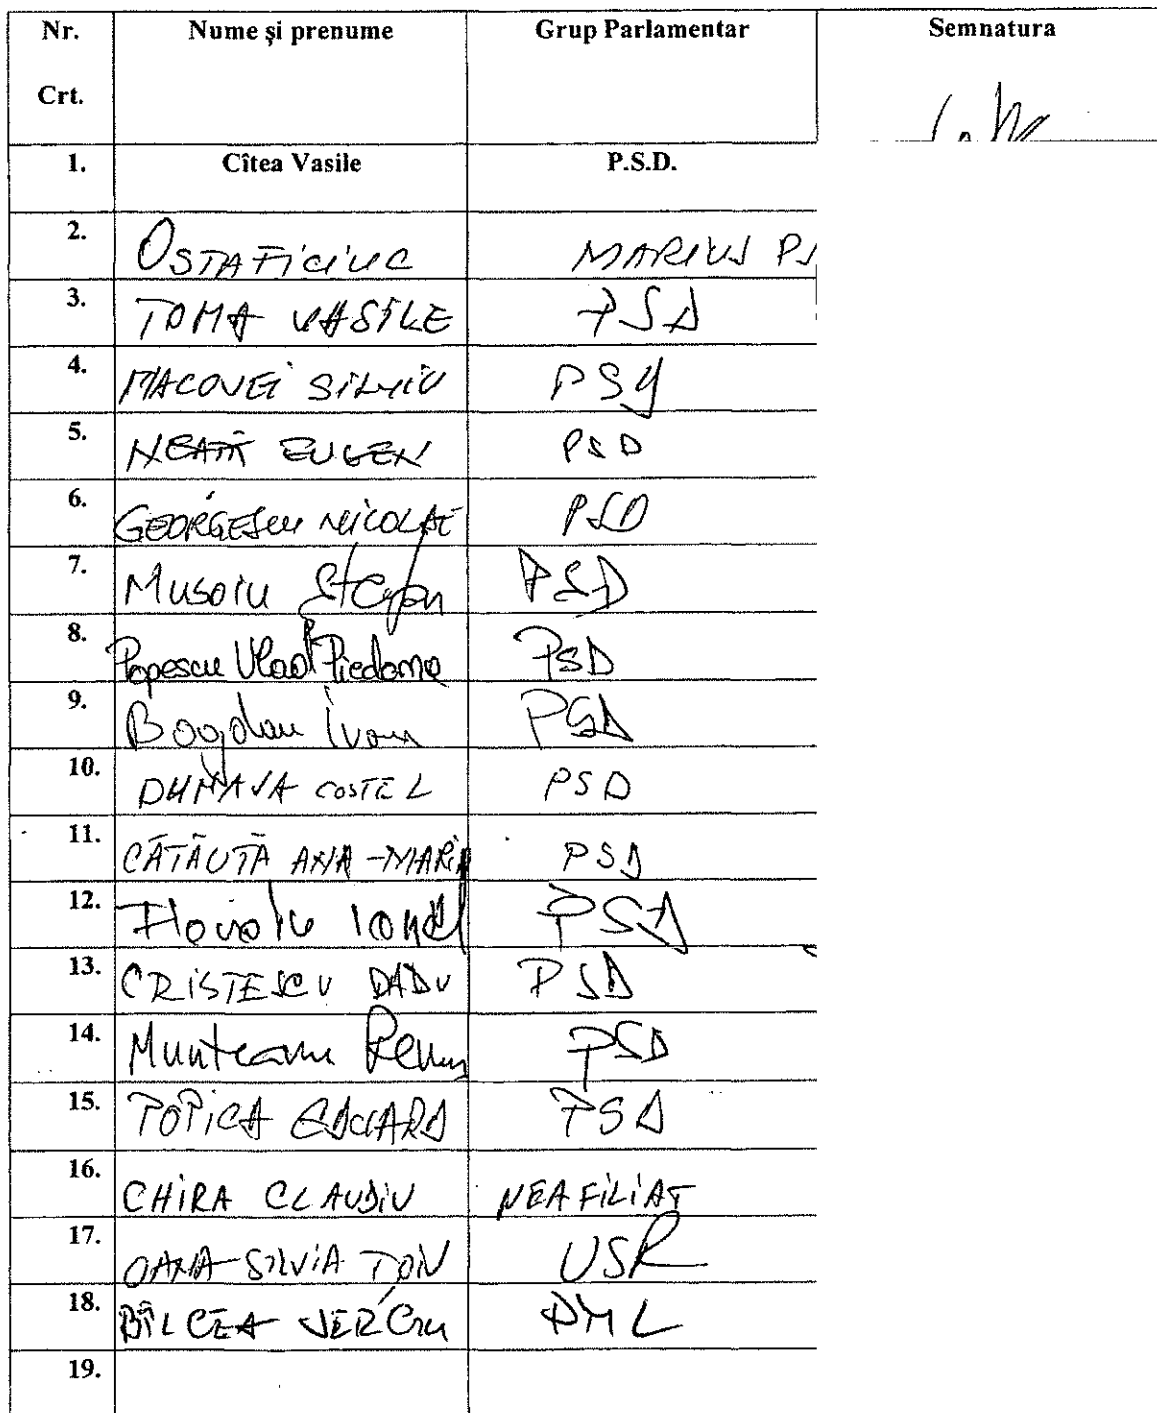 Nr. Crt. Nume și prenume Grup Parlamentar Semnatura
1. Cîtea Vasile P.S.D.
2. OSTAFICIUC MARIUS PS
3. TOMA VASILE PSD
4. MACOVEI SILVIU PSD
5. NEAȚĂ EUGEN PSD
6. GEORGESCU NICOLAE PSD
7. Musoiu Stefan PSD
8. Popescu Vlad Piedone PSD
9. Bogdan Ivan PSD
10. DUNAVA COSTEL PSD
11. CĂTĂUȚĂ ANA-MARIA PSD
12. Ionel PSD
13. CRISTESCU RADU PSD
14. Munteanu Remus PSD
15. POPICA EDUARD PSD
16. CHIRA CLAUDIU NEAFILIAT
17. OANA-SILVIA ȚOIU USR
18. BÎLCEA PNL
19.